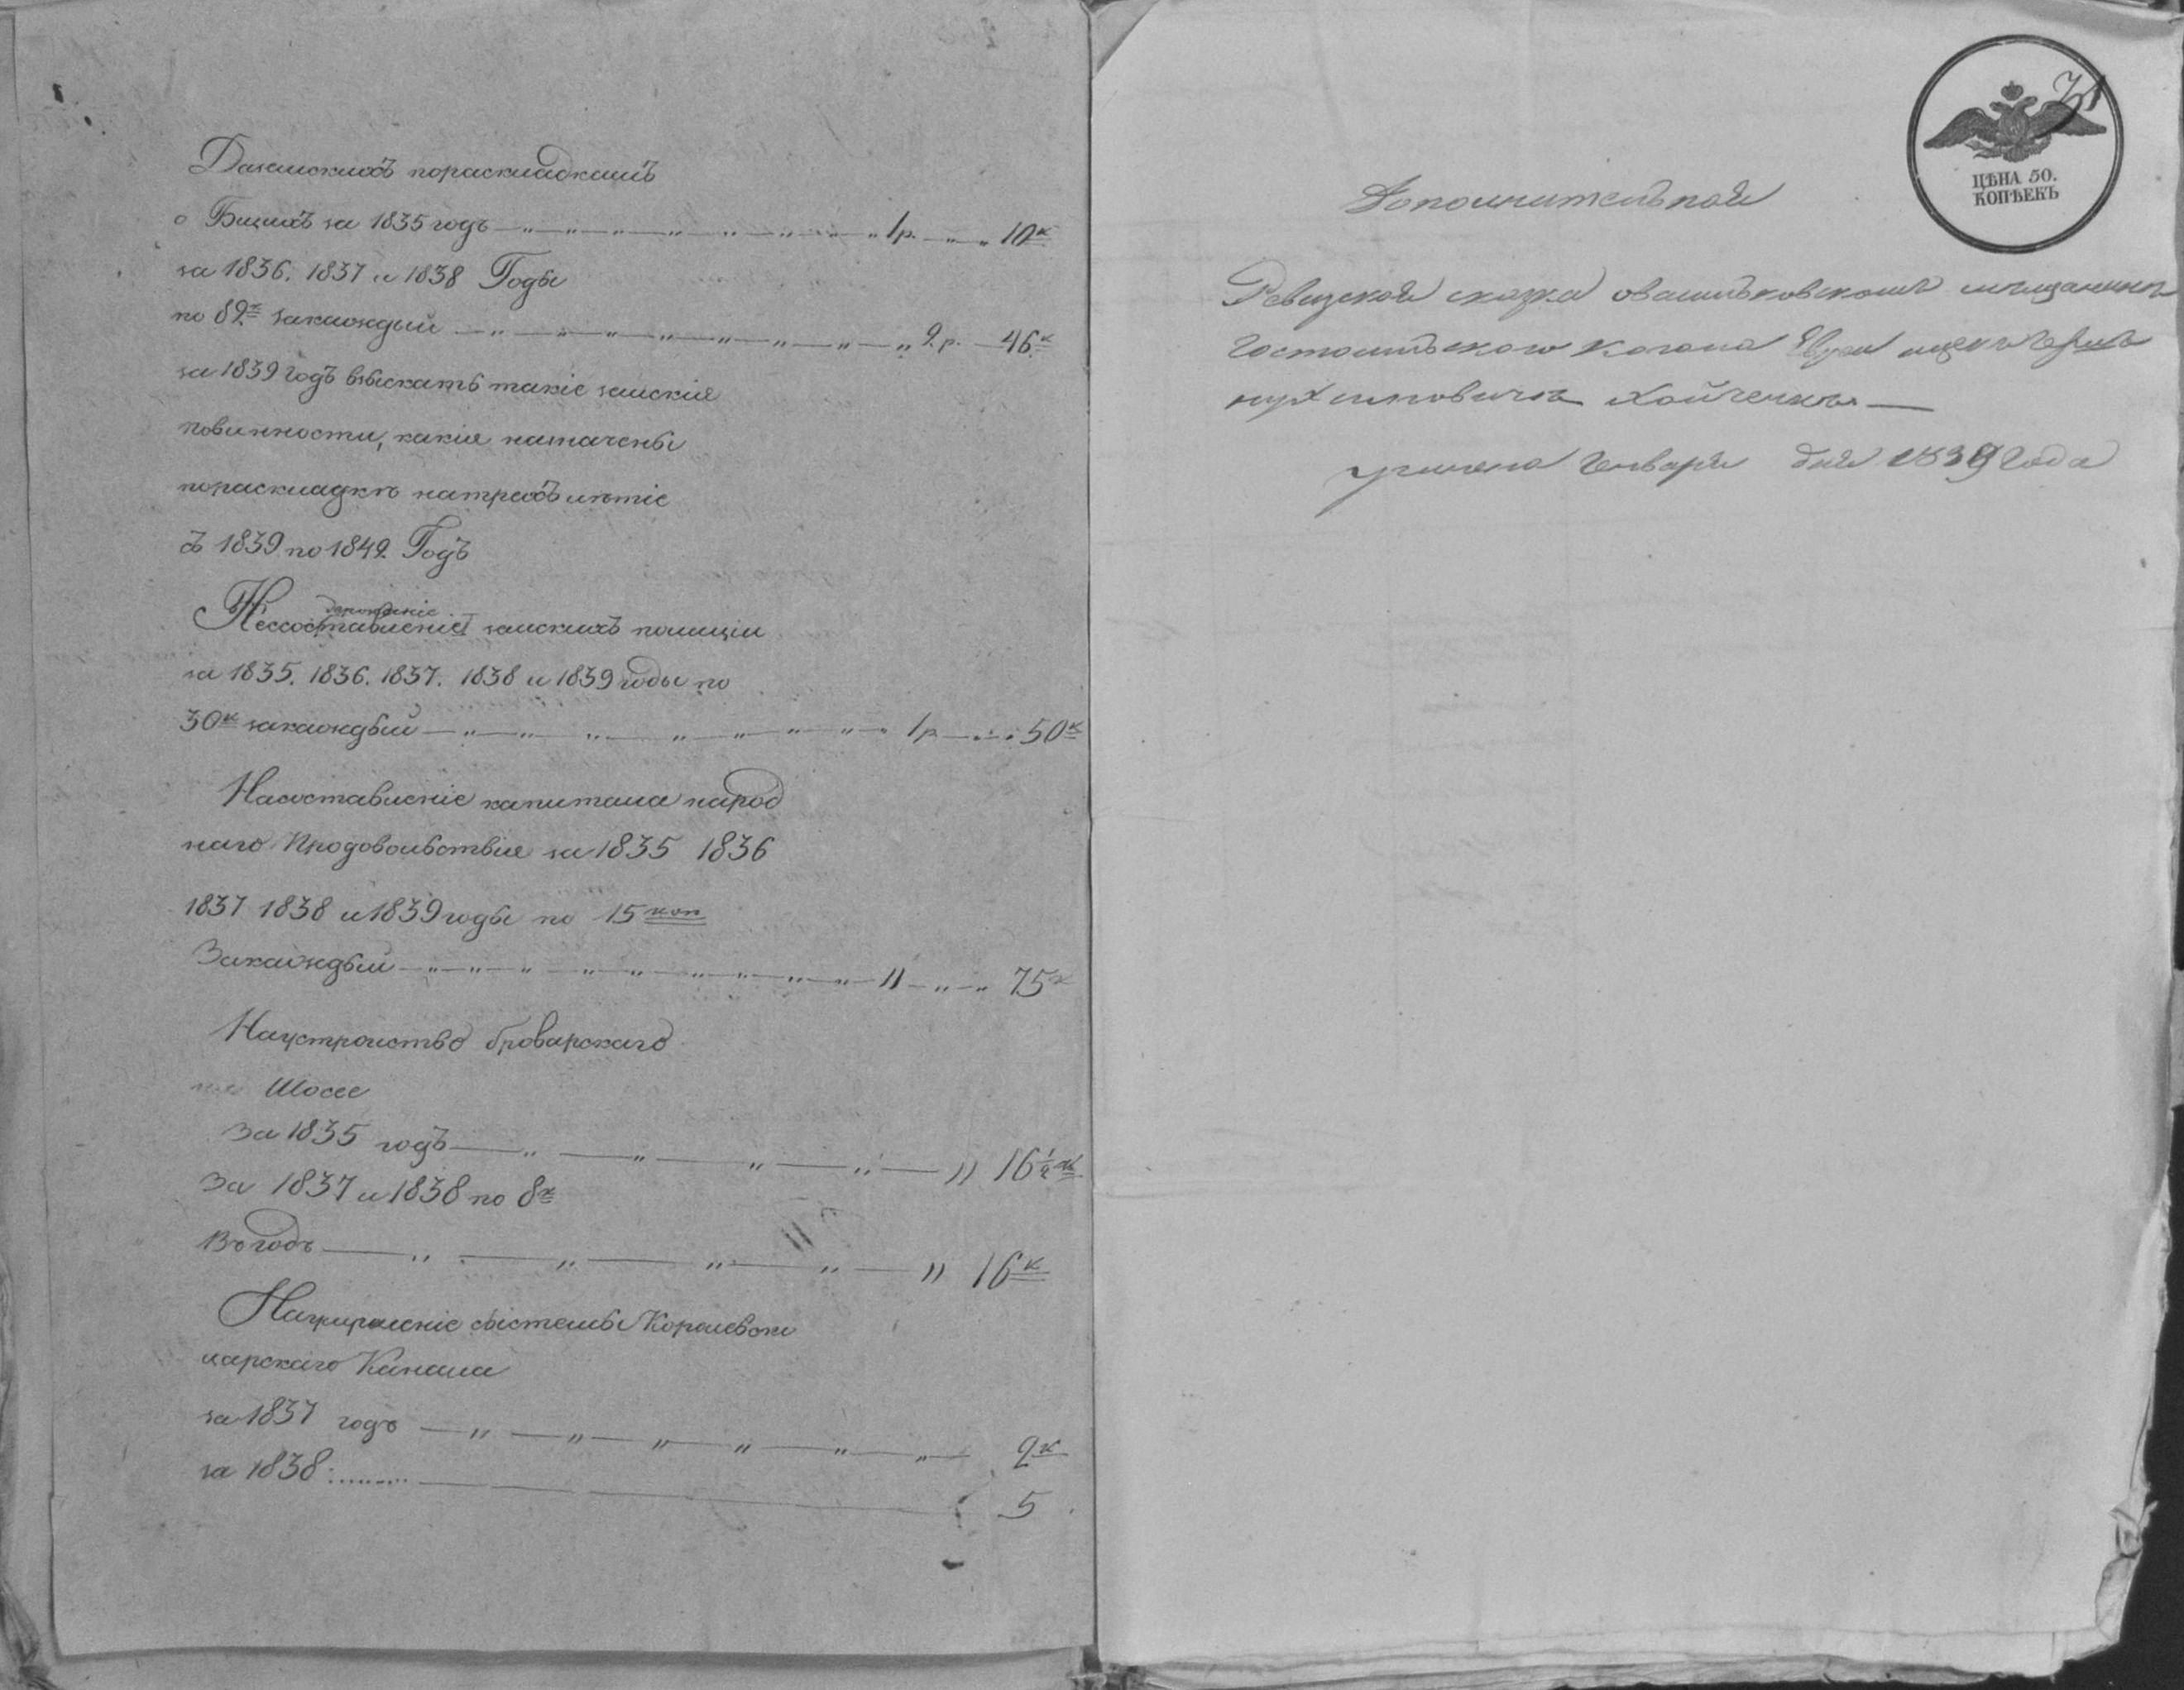 Даземскихъ пораскладкамъ
о Бщихъ за 1835 годъ — „ — „ — „ — „ — „ 1 р. — „ 10 к
за 1836. 1837 и 1838 Годы
по 82 к закаждый — „ — „ — „ — „ — „ 2. р. — 46 к
за 1839 годъ взыскать такіе земскія
повинности, какія назначены
пораскладкѣ натрехъ лѣтіе
съ 1839 по 1842 Годъ
земскихъ полиціи
за 1835. 1836. 1837. 1838 и 1839 годы по
30 к закаждый — „ — „ — „ — „ — „ 1 р — „ 50 к
Насоставленіе капитала народ
наго Продовольствія за 1835 1836
1837 1838 и 1839 годы по 15 коп
Закаждый — „ — „ — „ — „ — „ — „ 75 к
Наустроиство броварскаго
Шосее
За 1835 годъ — „ — „ — „ — „ — „ 16 ½ к
За 1837 и 1838 по 8 к
Въ годъ — „ — „ — „ — „ — „ 16 к
сыстемы Королевски
царскаго Канала
за 1837 годъ — „ — „ — „ — „ — „ — 2 к
за 1838 : ........ — 5
ЦѢНА 50.
КОПѢЕКЪ
Дополнительная
Ревизская сказка овасильковскомъ мещанинѣ
Гостомльского Кагала Еврея
Хойченкѣ —
учинена Генваря дня 1839 Года